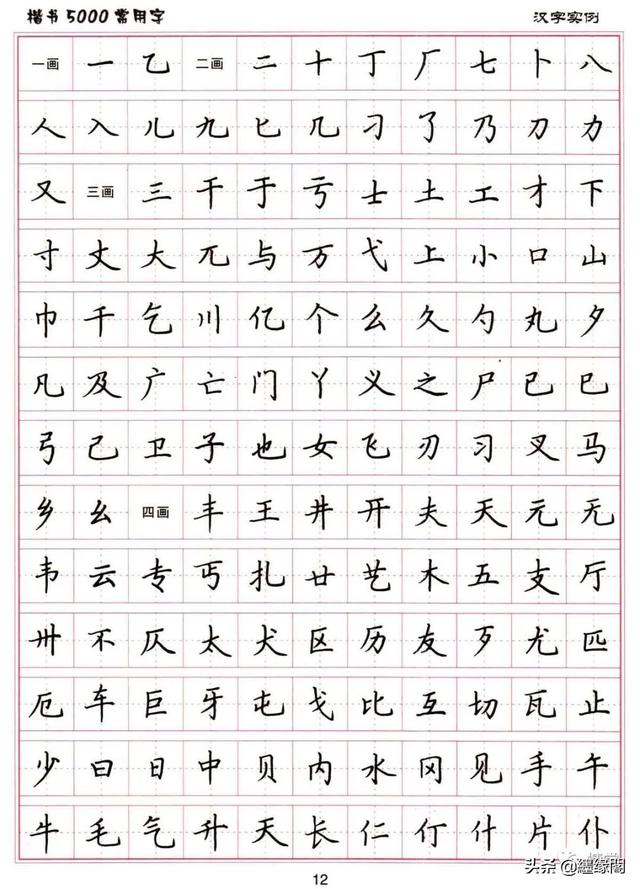 楷书5000常用字 汉字实例
一画 一 乙 二画 二 十 丁 厂 七 卜 八
人 入 儿 九 匕 几 刁 了 乃 刀 力
又 三画 三 干 于 亏 士 土 工 才 下
寸 丈 大 兀 与 万 弋 上 小 口 山
巾 千 乞 川 亿 个 么 久 勺 丸 夕
凡 及 广 亡 门 丫 义 之 尸 已 巳
弓 己 卫 子 也 女 飞 刃 习 叉 马
乡 幺 四画 丰 王 井 开 夫 天 元 无
韦 云 专 丐 扎 廿 艺 木 五 支 厅
卅 不 仄 太 犬 区 历 友 歹 尤 匹
厄 车 巨 牙 屯 戈 比 互 切 瓦 止
少 曰 日 中 贝 内 水 冈 见 手 午
牛 毛 气 升 夭 长 仁 仃 什 片 仆
12
头条 @纏缘閣